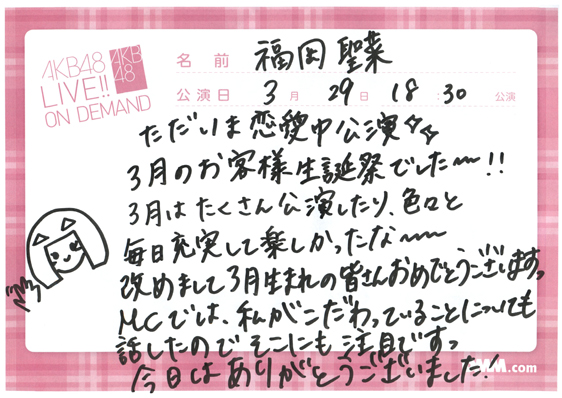 AKB48
LIVE!!
ON DEMAND
AKB
48
名前 福岡 聖菜
公演日 3月 29日 18:30 公演
ただいま恋愛中公演
3月のお客様生誕祭でした〜!!
3月はたくさん公演したり、色々と
毎日充実して楽しかったな〜〜
改めまして3月生まれの皆さんおめでとうございますっ
MCでは、私がこだわっていることについても
話したのでそこにも注目ですっ
今日はありがとうございました!
MM.com